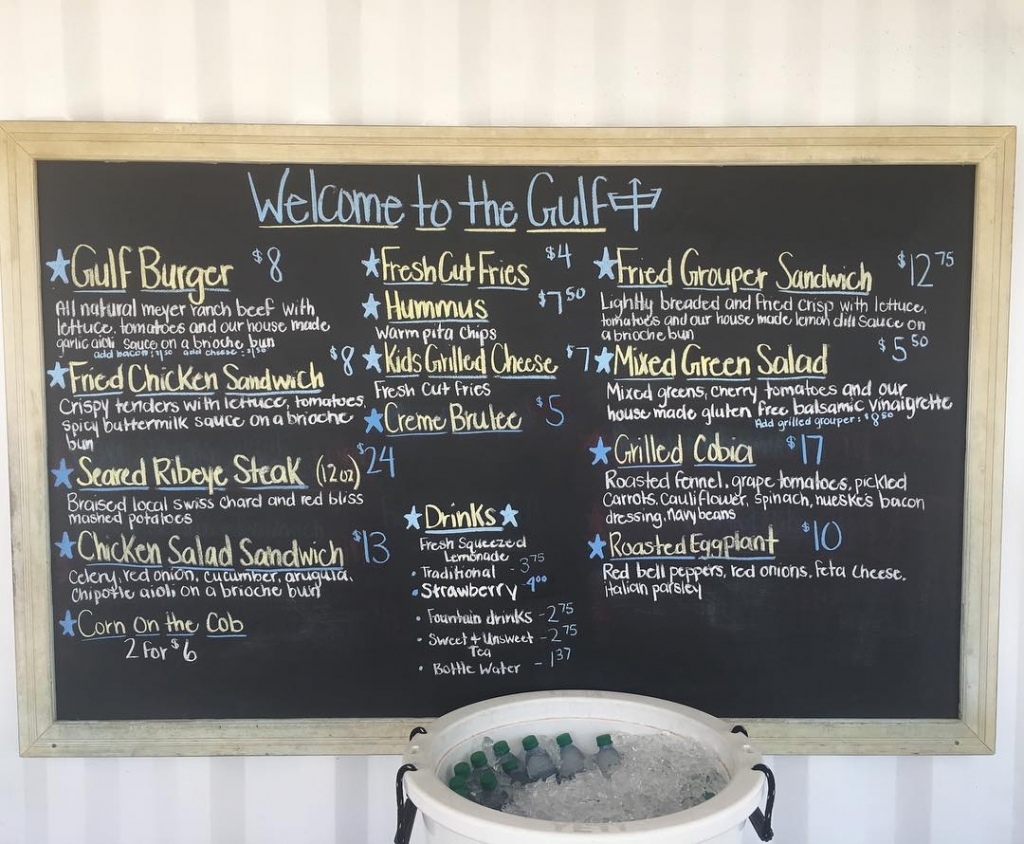 Welcome to the Gulf
Gulf Burger $8
All natural meyer ranch beef with
lettuce, tomatoes and our house made
garlic aioli sauce on a brioche bun
add bacon: $1.50 add cheese: $1.50
Fried Chicken Sandwich $8
Crispy tenders with lettuce, tomatoes,
spicy buttermilk sauce on a brioche
bun
Seared Ribeye Steak (12oz) $24
Braised local swiss chard and red bliss
mashed potatoes
Chicken Salad Sandwich $13
Celery, red onion, cucumber, arugula,
Chipotle aioli on a brioche bun
Corn on the Cob
2 for $6
Fresh Cut Fries $4
Hummus $7.50
Warm pita chips
Kids Grilled Cheese $7
Fresh Cut Fries
Creme Brulee $5
Drinks
Fresh Squeezed
Lemonade
• Traditional - 3.75
• Strawberry - 4.00
• Fountain drinks - 2.75
• Sweet + Unsweet - 2.75
Tea
• Bottle Water - 1.37
Fried Grouper Sandwich $12.75
Lightly breaded and fried crisp with lettuce,
tomatoes and our house made lemon dill sauce on
a brioche bun
Mixed Green Salad $5.50
Mixed greens, cherry tomatoes and our
house made gluten free balsamic vinaigrette
Add grilled grouper: $8.50
Grilled Cobia $17
Roasted fennel, grape tomatoes, pickled
carrots, cauliflower, spinach, nueske's bacon
dressing, navy beans
Roasted Eggplant $10
Red bell peppers, red onions, feta cheese,
italian parsley
YETI